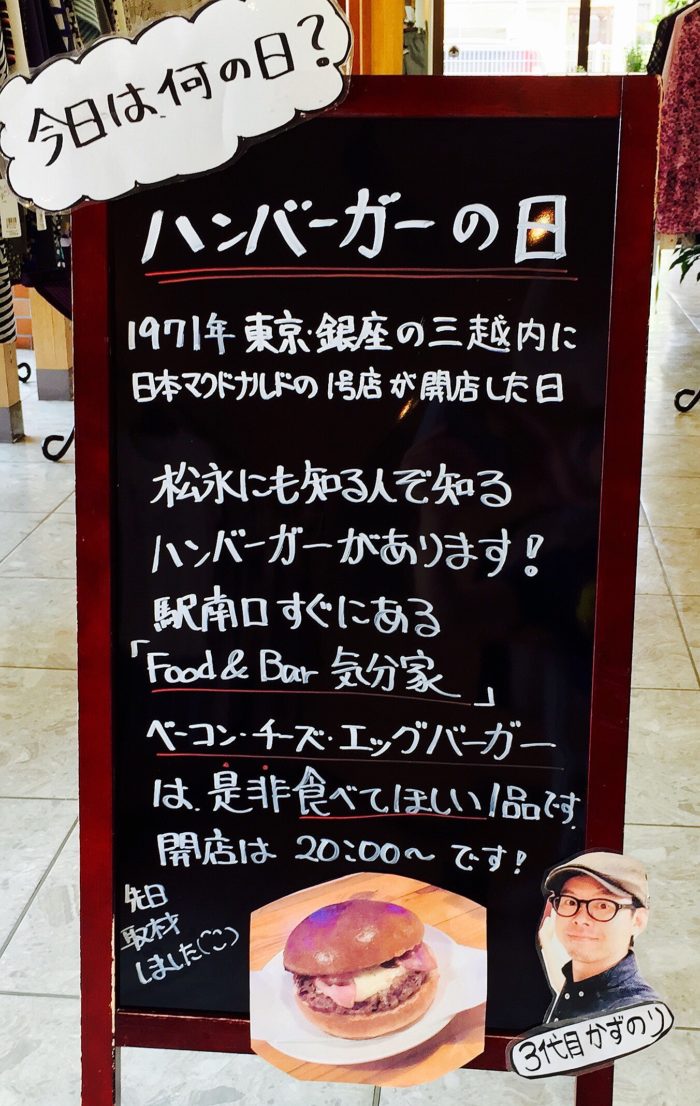 今日は何の日?
ハンバーガーの日
1971年 東京・銀座の三越内に
日本マクドナルドの1号店が開店した日
松永にも知る人ぞ知る
ハンバーガーがあります!
駅南口すぐにある
「Food & Bar 気分家」
ベーコン・チーズ・エッグバーガー
は、是非食べてほしい1品です
開店は 20:00〜 です!
先日
取材
しました
3代目かずのり